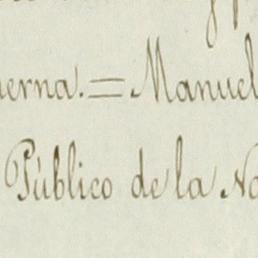 erna.=Manuel
Público de la No